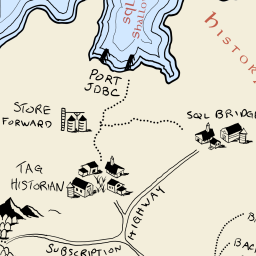 SQL
Shallo
HISTORY
PORT
JDBC
STORE
FORWARD
SQL BRIDG
TAG
HISTORIAN
HIGHWAY
SUBSCRIPTION
BA
BAC